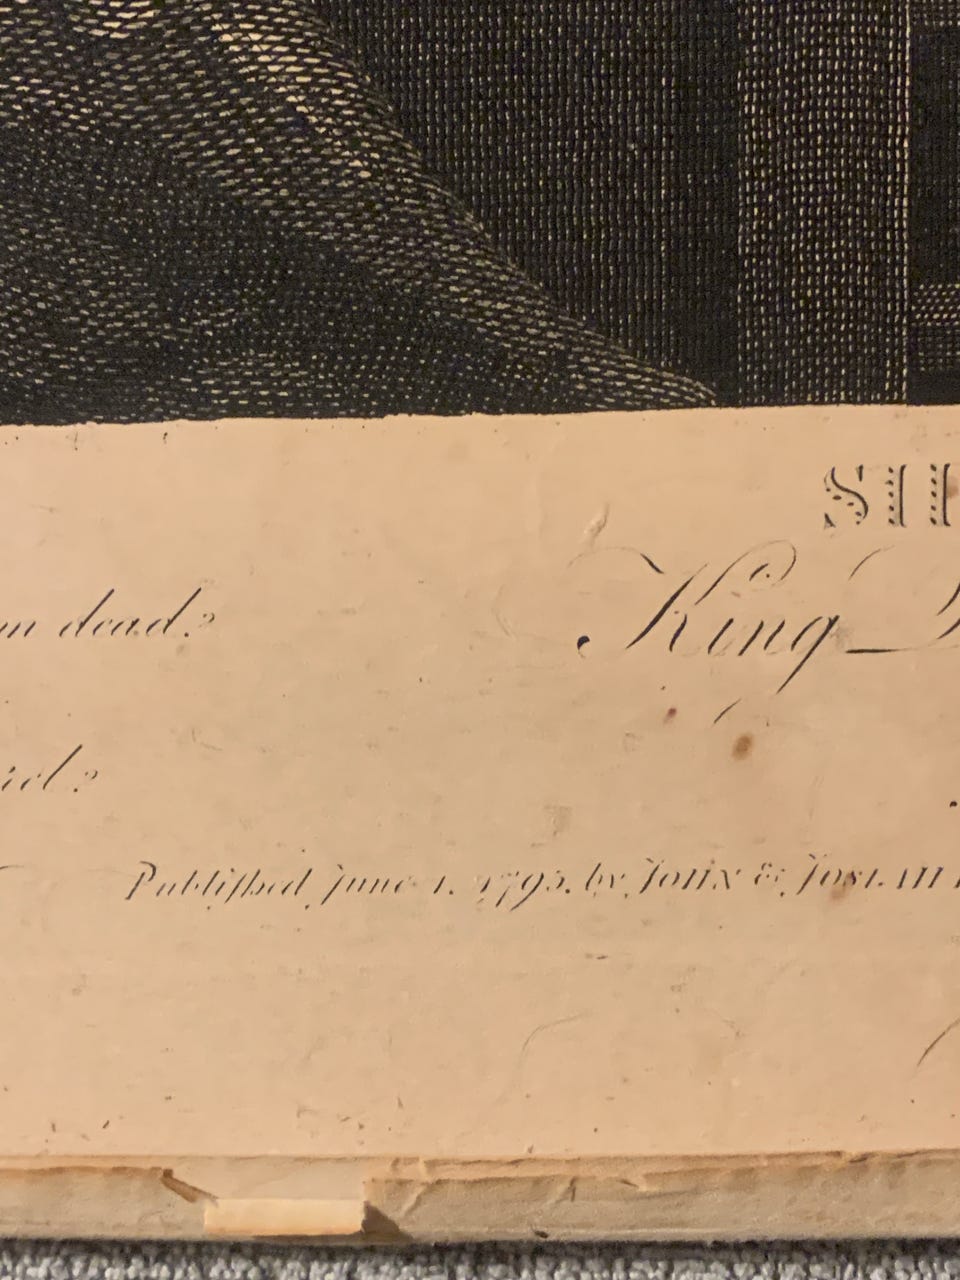 SH
m dead?
King
Publiſhed June 1. 1795. by JOHN & JOSIAH